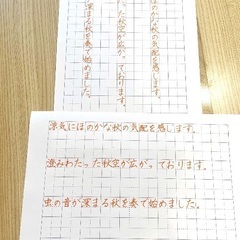 涼気にほのかな秋の気配を感じます。
澄みわたった秋空が広がっております。
虫の音が深まる秋を奏で始めました。
のかな秋の気配を感じます。
た秋空が広がっております。
深まる秋を奏で始めました。